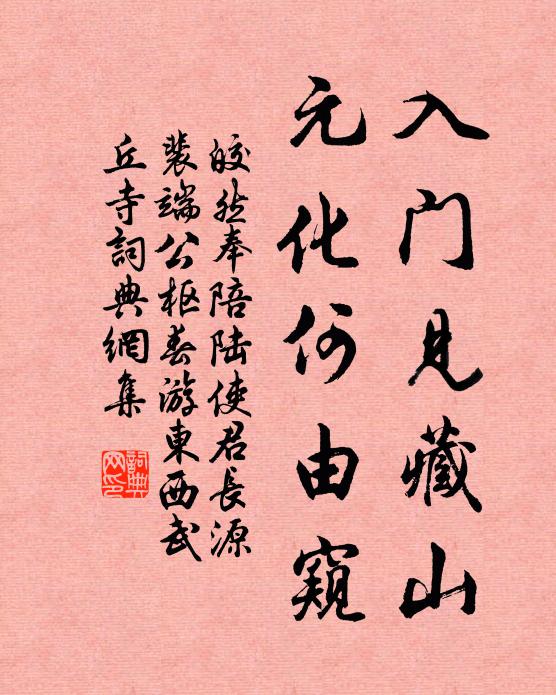 入門見藏山
元化何由窺
皎然奉陪陸使君長源
裴端公枢春游東西武
丘寺詞典網集
詞典
网印